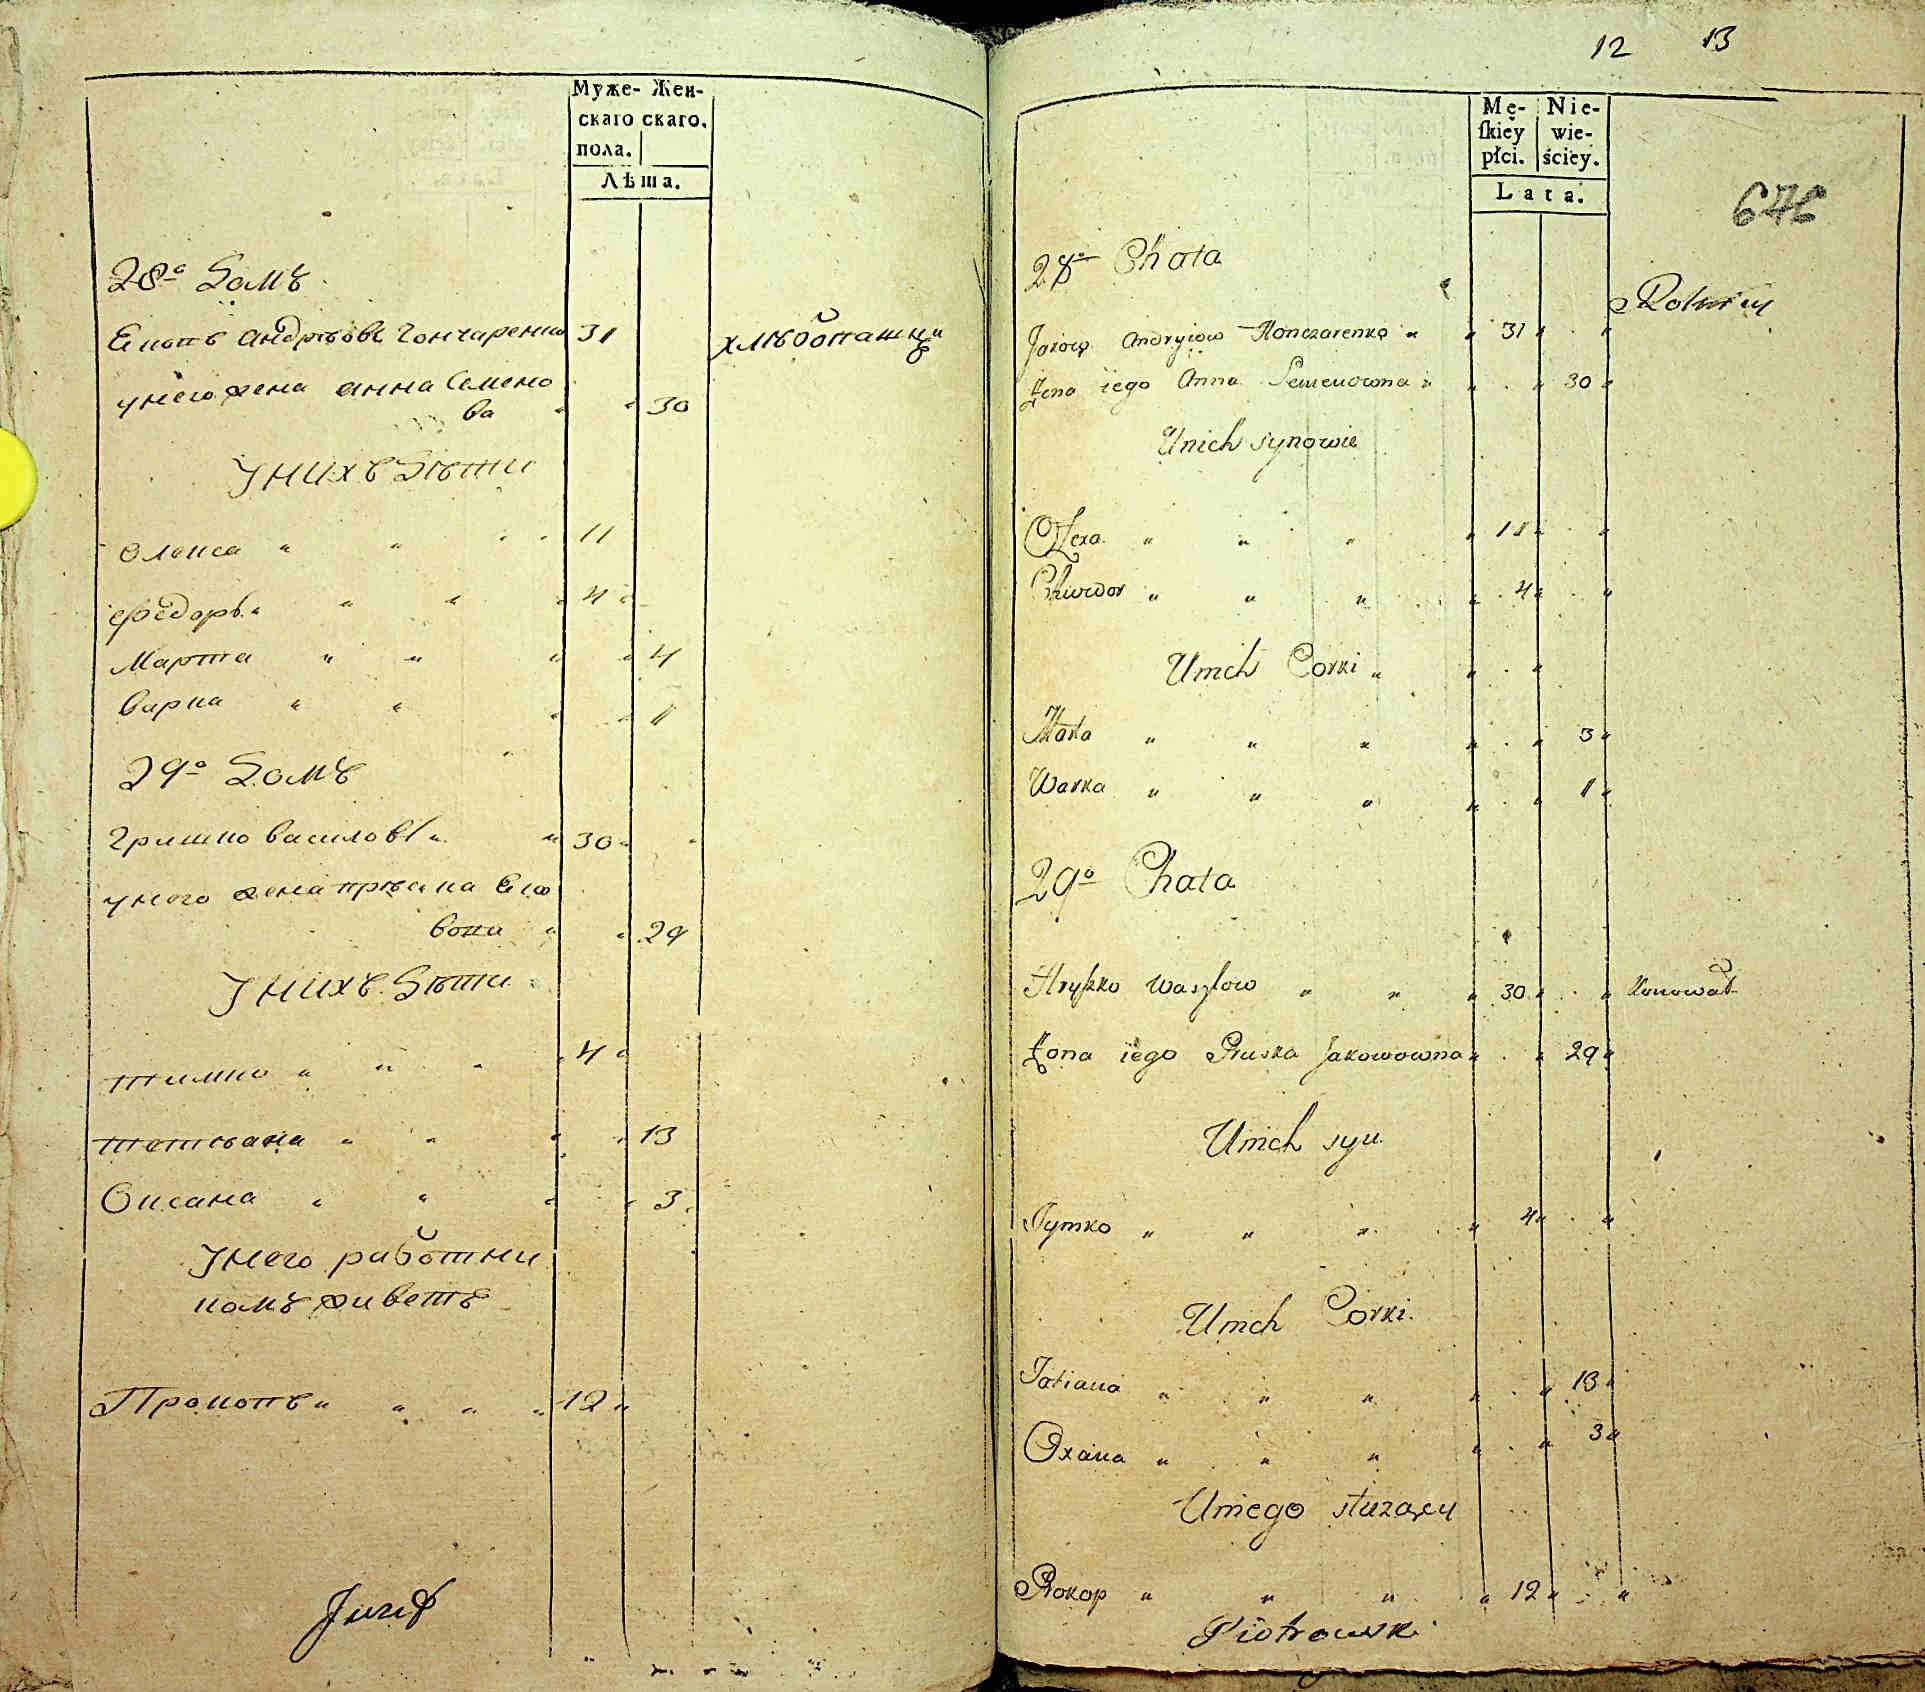 Муже- Жен-
скаго скаго.
пола.
Лѣта.
28º Домъ
Якопъ Андрѣовъ Гончаренко 31 хлѣбопашцы
у него жена Анна Семено
ва 30
У нихъ Дѣти
Олекса 11
Ѳедоръ 4
Марта 4
Варка 1
29º Домъ
Гришко Василовъ 30
у него жена Прѣська Яко
вова 29
У нихъ Дѣти
Тимко 4
Тетьяна 13
Оксана 3
У него работни
комъ живетъ
Прокопъ 12
Józef
12 13
Mę- Nie-
skiey wie-
płci. ściey.
Lata.
28º Chata
Rolnicy
Jakow Andryiow Honczarenko 31
Żona iego Anna Semenowna 30
U nich synowie
Olexa 11
Chwedor 4
U nich Corki
Warka 1
29º Chata
Hryszko Wasylow 30 Konował
Żona iego Pruska Jakowowna 29
U nich syn
Tymko 4
U nich Corki
Tatiana 13
Oxana 3
U niego służący
Prokop 12
Piotrowski